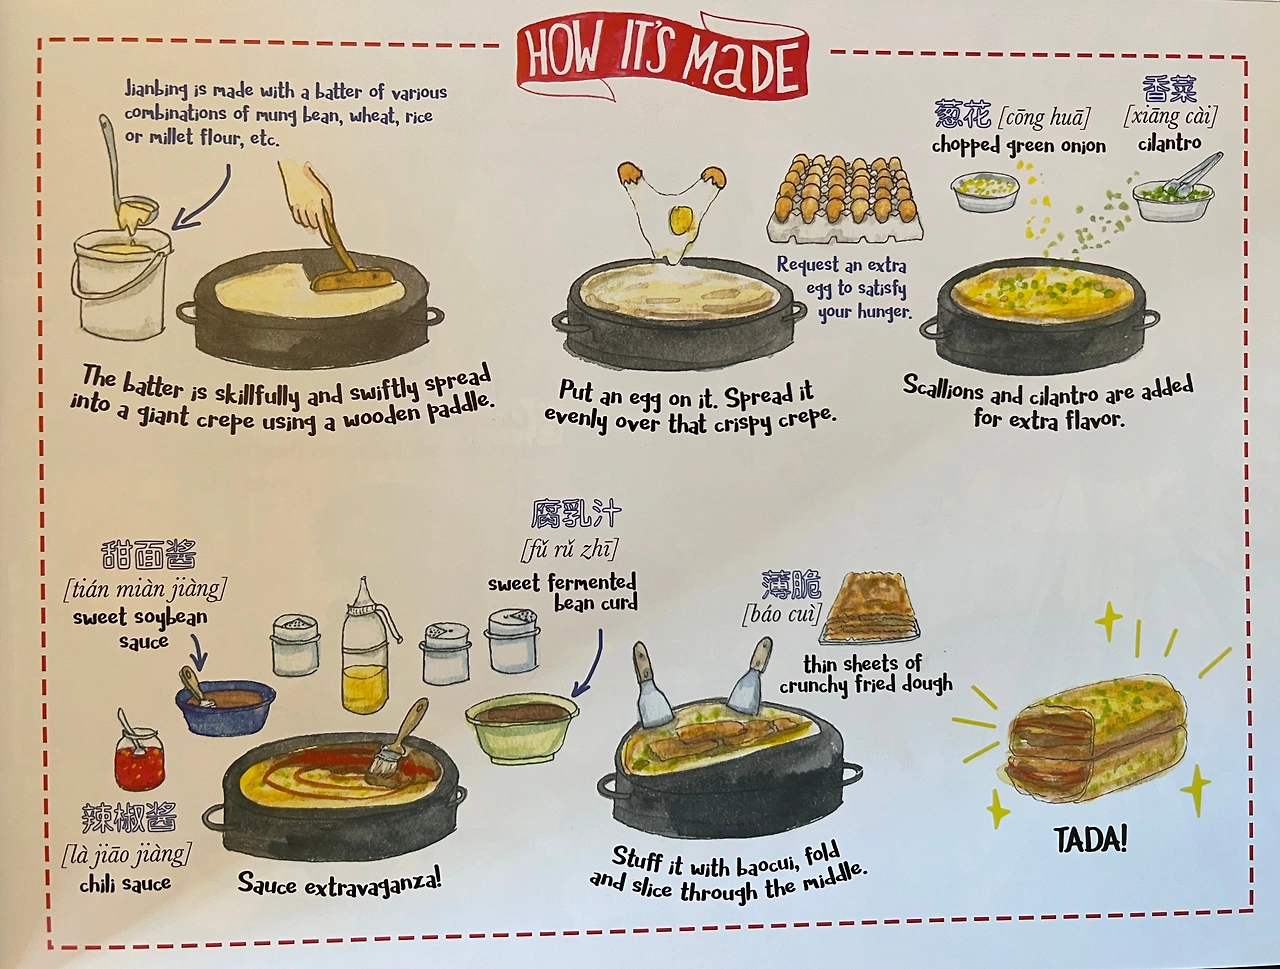 HOW IT'S MADE
Jianbing is made with a batter of various
combinations of mung bean, wheat, rice
or millet flour, etc.
The batter is skillfully and swiftly spread
into a giant crepe using a wooden paddle.
Request an extra
egg to satisfy
your hunger.
Put an egg on it. Spread it
evenly over that crispy crepe.
葱花 [cōng huā]
chopped green onion
香菜
[xiāng cài]
cilantro
Scallions and cilantro are added
for extra flavor.
甜面酱
[tián miàn jiàng]
sweet soybean
sauce
腐乳汁
[fǔ rǔ zhī]
sweet fermented
bean curd
辣椒酱
[là jiāo jiàng]
chili sauce
Sauce extravaganza!
薄脆
[báo cuì]
thin sheets of
crunchy fried dough
Stuff it with baocui, fold
and slice through the middle.
TADA!